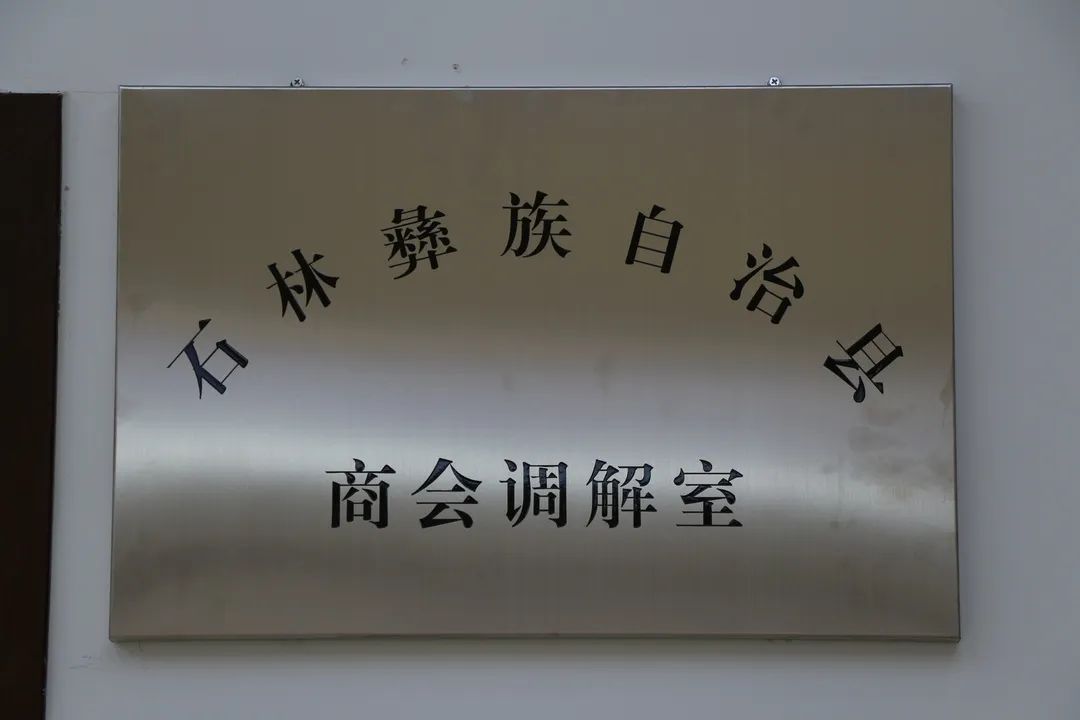 石林彝族自治县
商会调解室